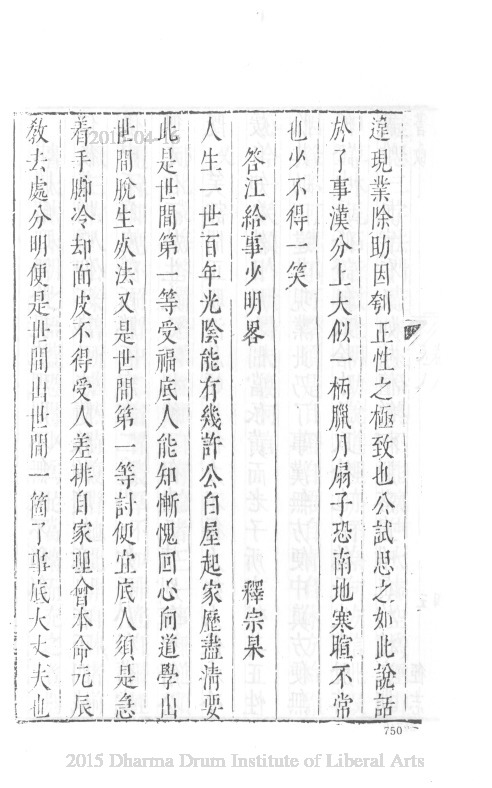 違現業除助因刳正性之極致也公試思之如此說話
於了事漢分上大似一柄臘月扇子恐南地寒暄不常
也少不得一笑
答江給事少明畧
釋宗杲
人生一世百年光陰能有幾許公白屋起家歷盡清要
此是世間第一等受福底人能知慚愧回心向道學出
世間脫生死法又是世間第一等討便宜底人須是急
着手脚冷却面皮不得受人差排自家理會本命元辰
敎去處分明便是世間出世間一箇了事底大丈夫也
750
2015-04-16
2015 Dharma Drum Institute of Liberal Arts